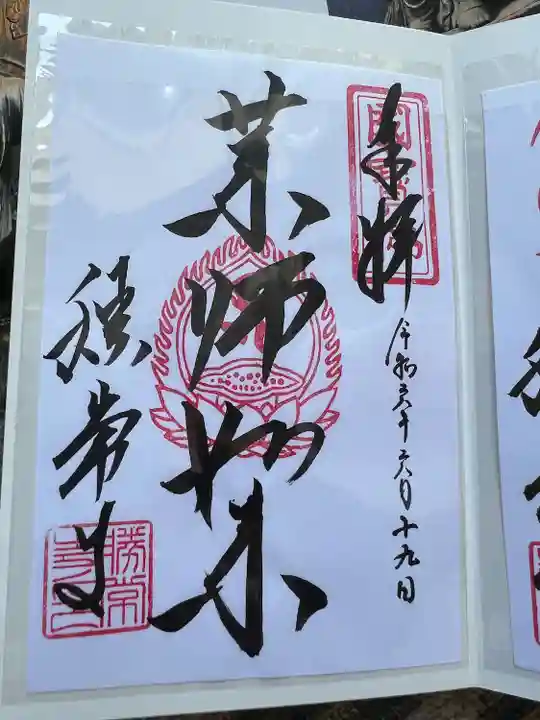 奉拝
國寳佛
令和年六月十九日
薬師如来
勝常寺
勝常